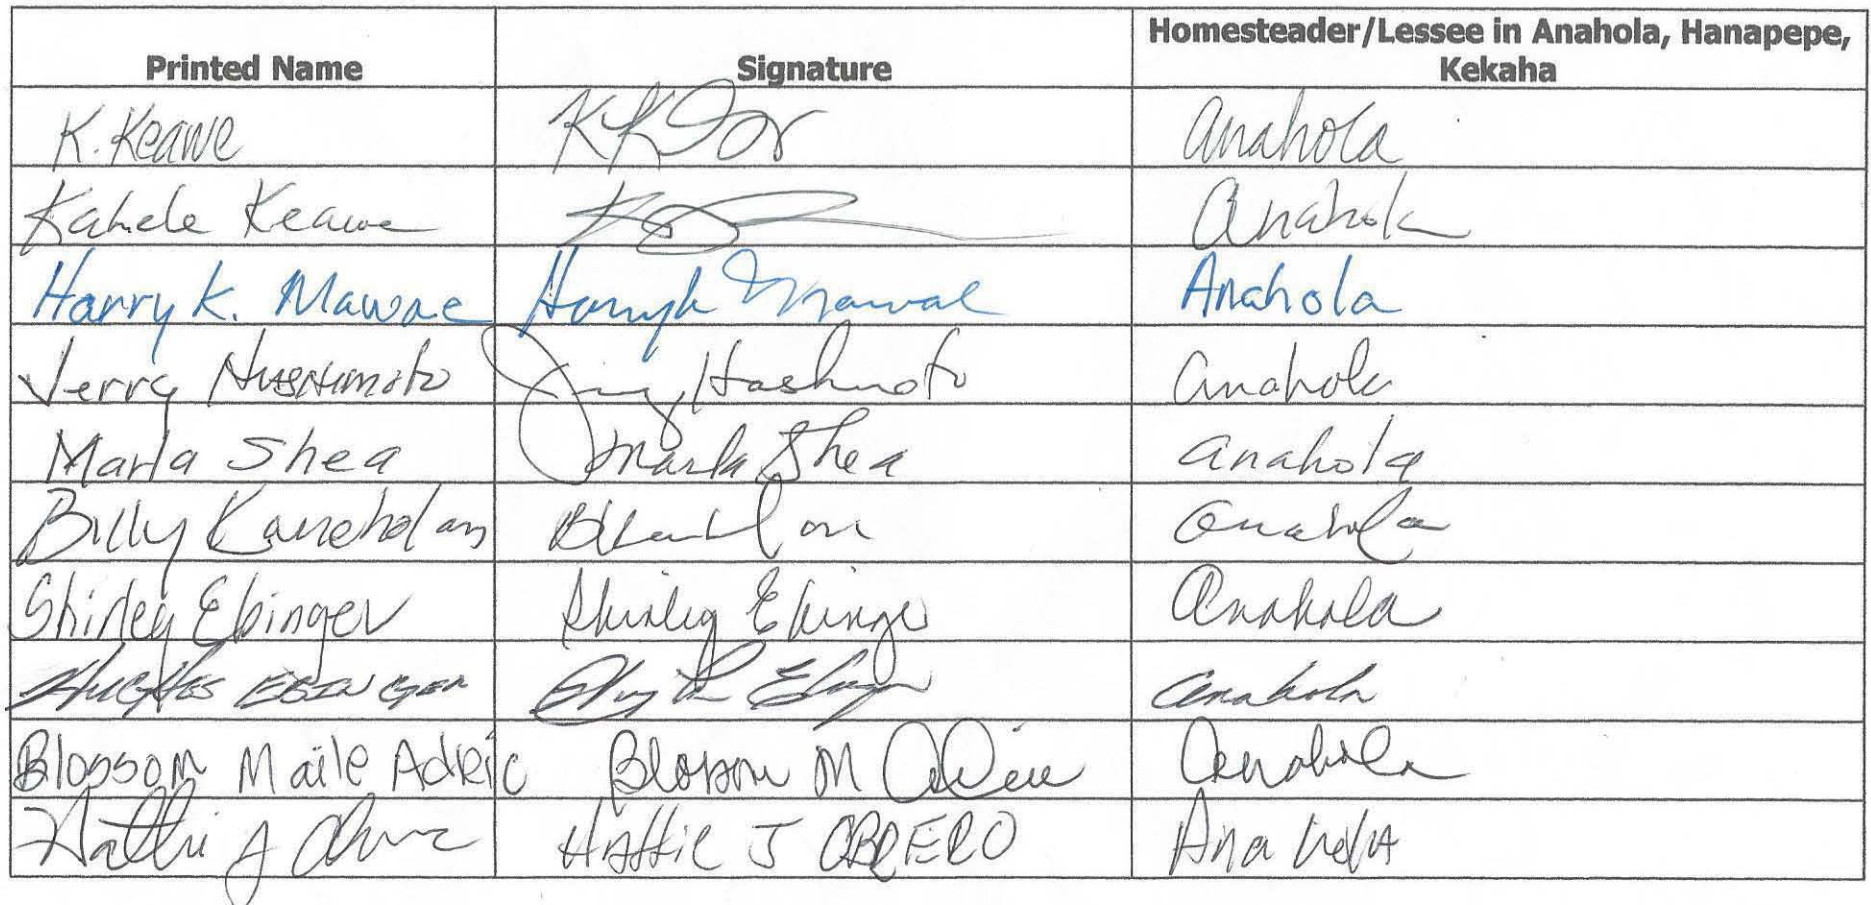 Printed Name Signature Homesteader/Lessee in Anahola, Hanapepe, Kekaha
K. Keawe Anahola
Kahele Keawe Anahola
Harry K. Mawae Harry K Mawae Anahola
Jerry Hashimoto Jerry Hashimoto Anahola
Marla Shea Marla Shea anahola
Billy Anahola
Shirley Ebinger Shirley Ebinger Anahola
Hughes EBINGER anahola
Blossom Maile Adric Blossom M Anahola
Hattie J Hattie J OBRERO Anahola